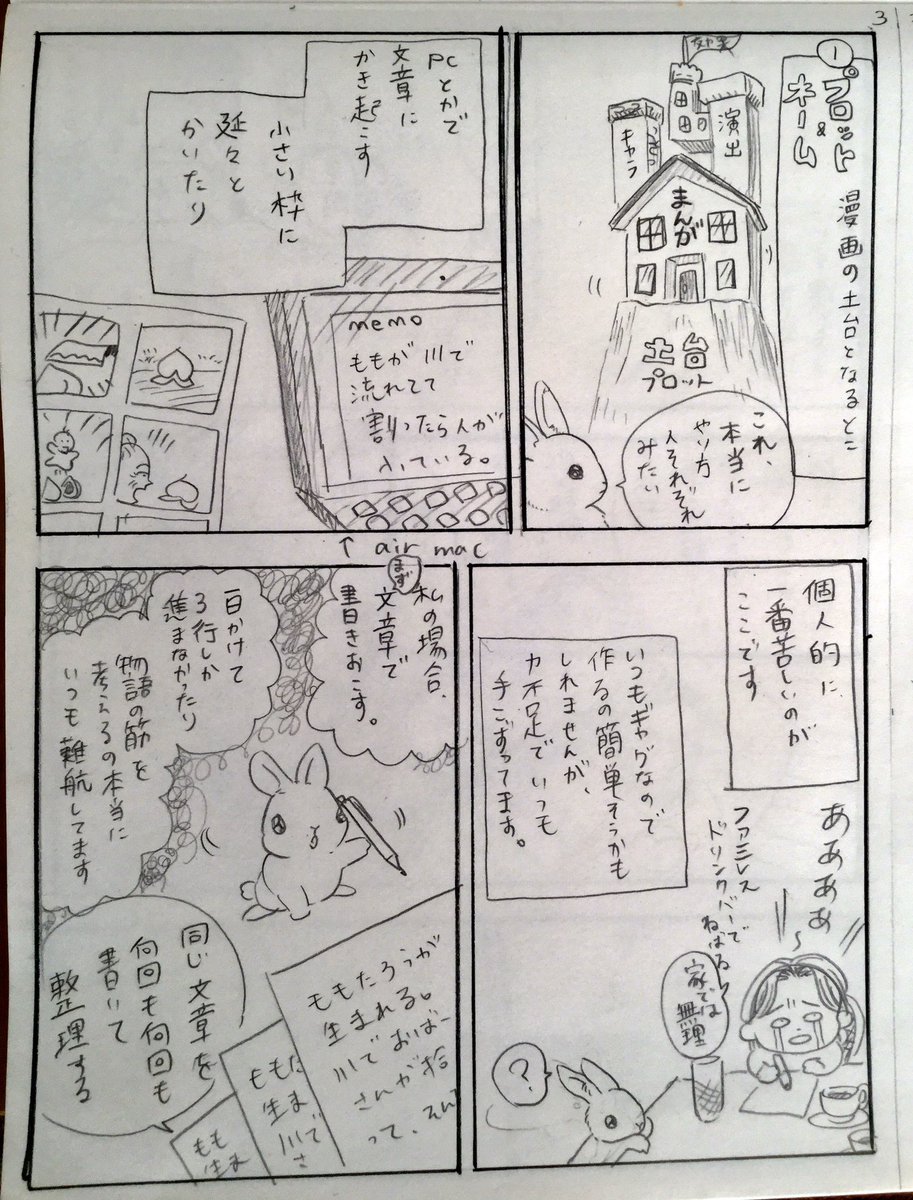 3
①
プロット
&
ネーム
漫画の土台となるとこ
効果
演出
キャラ
まんが
土台
プロット
これ、
本当に
やり方
人それぞれ
みたい
PCとかで
文章に
かき起こす
小さい枠に
延々と
かいたり
memo
ももが川で
流れてて
割ったら人が
入っている。
↑ air mac
個人的に、
一番苦しいのが
ここです
いつもギャグなので
作るの簡単そうかも
しれませんが、
力不足でいつも
手こずってます。
ああああ
ファミレス
ドリンクバーで
ねばる
家では
無理
?
私の場合、
まず
文章で
書きおこす。
一日かけて
3行しか
進まなかったり
物語の筋を
考えるの本当に
いつも難航してます
同じ文章を
何回も何回も
書いて
整理する
ももたろうが
生まれる。
川でおばー
さんが拾
って、
ももた
生ま
川で
さ
もも
生ま